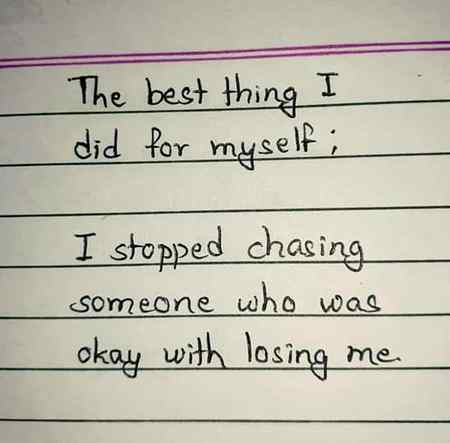 The best thing I
did for myself;
I stopped chasing
someone who was
okay with losing me.